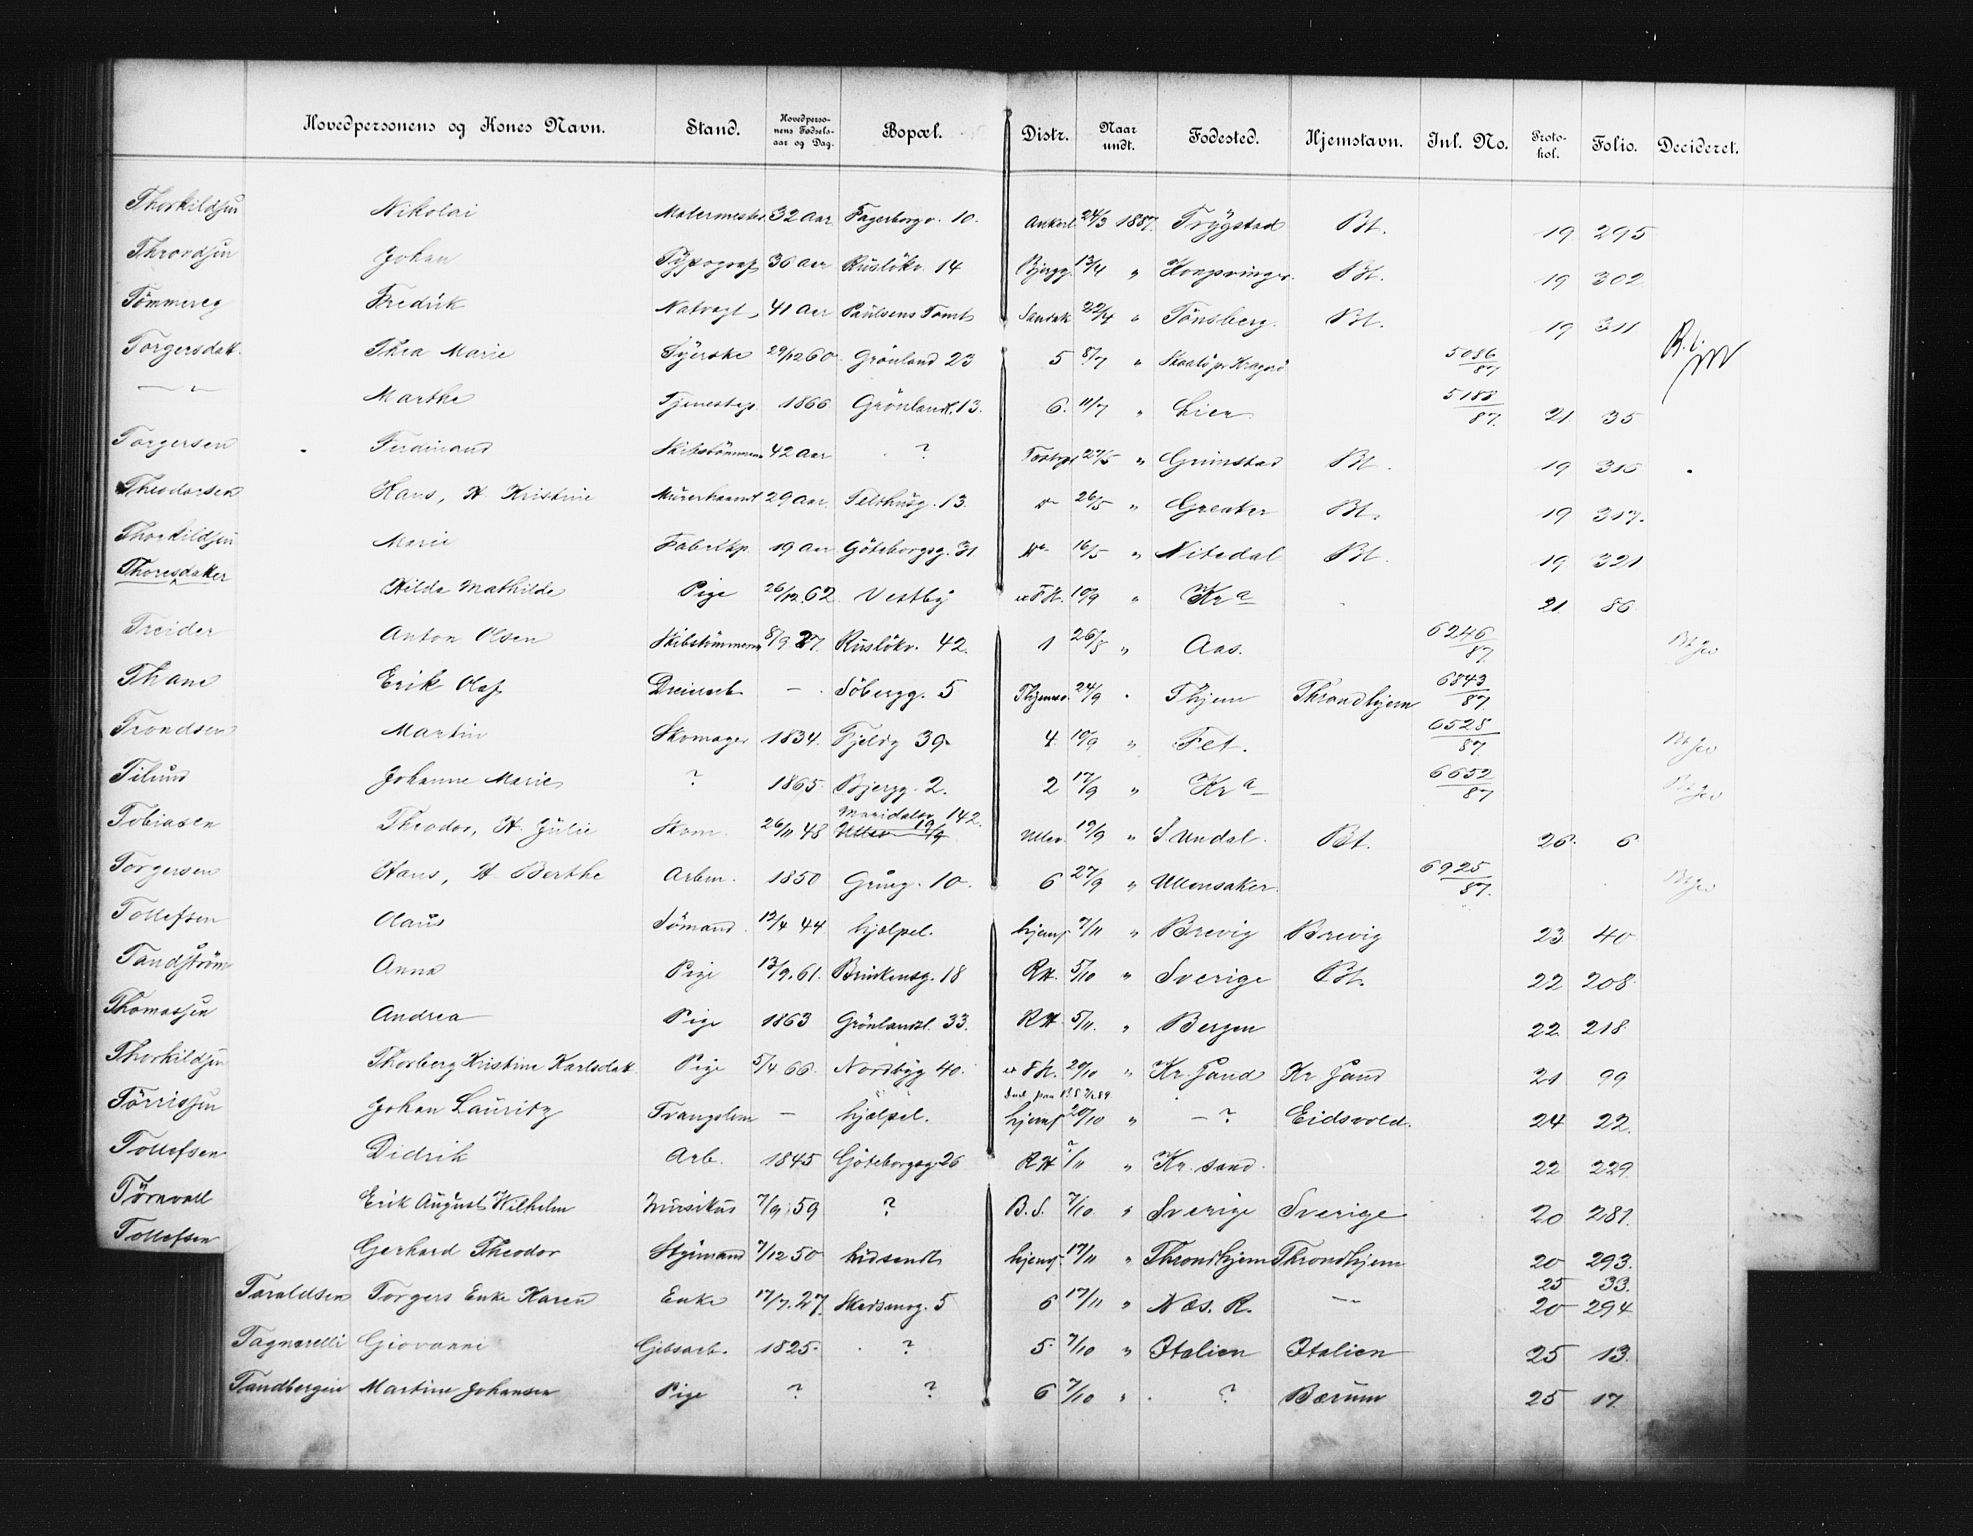 Hovedpersonens og Kones Navn. Stand. Hovedpersonens Fødselsaar og Dag. Bopæl. Distr. Naar undt. Fødested. Hjemstavn. Inl. No. Protokol. Folio. Decideret.
Thorkildsen Nikolai Malermester 32 Aar Fagerborgv. 10. Ankerl 24/3 1887. Trygstad Bt. 19 295
Throndsen Johan Typograf 36 Aar Rusløkv. 14 Bjergg. 13/4 " Kongsvinger Bt. 19 302
Tømmereg Fredrik Natvagt 41 Aar Paulsens Tomt Sandak 22/4 " Tønsberg. Bt. 19 311
Torgersdatt. Thea Marie Syerske 29/12 60 Grønland 23 5 8/7 " Skaatø pr. Kragerø 5086/87 R.t.
— " — Marthe Tjenestep. 1866 Grønlandsl. 13. 6. 11/7 " Lier 5188/87. 21. 35
Torgersen Ferdinand Skibstømmerm 42 Aar ? 27/5 " Grimstad Bt. 19 315
Theodorsen Hans, H. Kristine Murerhaandt 29 Aar. Telthusg. 13. do 26/5 " Greaker Bt. 19 317.
Thorkildsen Marie Fabrikp. 19 Aar Göteborgsg. 31 do 16/5 " Nitedal Bt. 19 321
Thoresdatter Hilda Mathilde Pige 26/12. 62. Vestby F.H. 10/9 " Kra 21 86
Treider Anton Olsen Skibstømmerm 8/9 27. Rusløkv. 42. 1 26/8 " Aas. 6246/87
Thane Erik Olaf Dreierarb — Söbergg. 5 Thjemsv. 24/9 Thjem Throndhjem 6843/87
Trondsen Martin Skomager 1834. Fjeldg 39. 4. 10/9 " Fet. 6528/87.
Tilund Johanne Marie ? 1865. Bjergg. 2. 2 17/9 " Kra 6652/87
Tobiasen Theodor, H. Julie Skom. 26/11 48 Maridalsv. 142. Ullev. 19/9 Ullev. 19/9 " S. Undal. Bt. 26. 6
Torgersen Hans, H. Berthe Arbm. 1850 Grüng. 10. 6 27/9 " Ullensaker. 6925/87.
Tollefsen Olaus Sömand. 12/4 44 hjælpel. hjemf 7/11 " Brevig Brevig 23 40
Tandstrøm Anna Pige 13/9. 61. Brinkensg. 18 RH. 5/10 " Sverige Bt. 22 208.
Thomassen Andrea Pige 1863 Grønlandsl. 33. RH 5/11. " Bergen 22. 218.
Thorkildsen Thorberg Kristine Karlsdatt Pige 5/4 66. Nordbyg 40. F.H. 20/10 " Kr. Sand Kr Sand 21 99
Tørrissen Johan Lauritz Tvangslem — hjælpel. hjemf 20/10 " — ? Eidsvold. 24 22.
Tollefsen Didrik Arb. 1845 Göteborgsg. 26 RH ?/11 " Kr. sand. 22 229.
Tørnvall Erik August Wilhelm Musikus 7/9 59 ? B.S. 7/10. " Sverige Sverige 20 281.
Tollefsen Gerhard Theodor Styrmand 7/12 50 hidsendt hjemf. 17/11 " Throndhjem Throndhjem 20 293.
25 33.
Taraldsen Torgers Enke Karen Enke 17/7. 27. Skedsmog. 5 6 17/11 " Næs. R. — 20 294.
Tagnarelli Giovanni Gibsarb. 1825. ? 5. 7/10 " Italien Italien 25 13.
Tandbergeie Martine Johansen Pige ? ? 6 7/10 " ? Bærum 25 17.